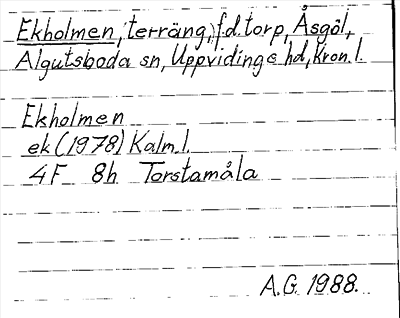 Ekholmen, terräng, f.d. torp, Åsgöl,
Algutsboda sn, Uppvidinge hd, Kron. l.
Ekholmen
ek (1978) Kalm. l.
4F 8h Torstamåla
A.G. 1988.